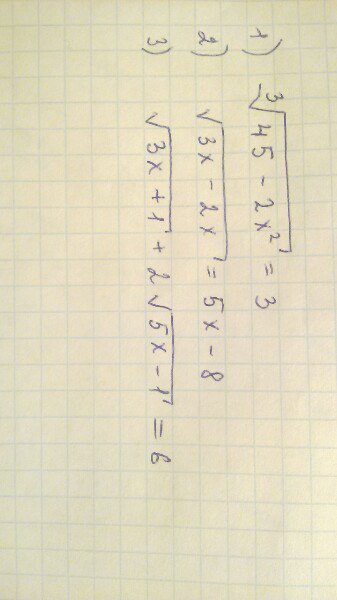 1) ∛(45 - 2x²) = 3
2) √(3x - 2x) = 5x - 8
3) √(3x + 1) + 2√(5x - 1) = 6